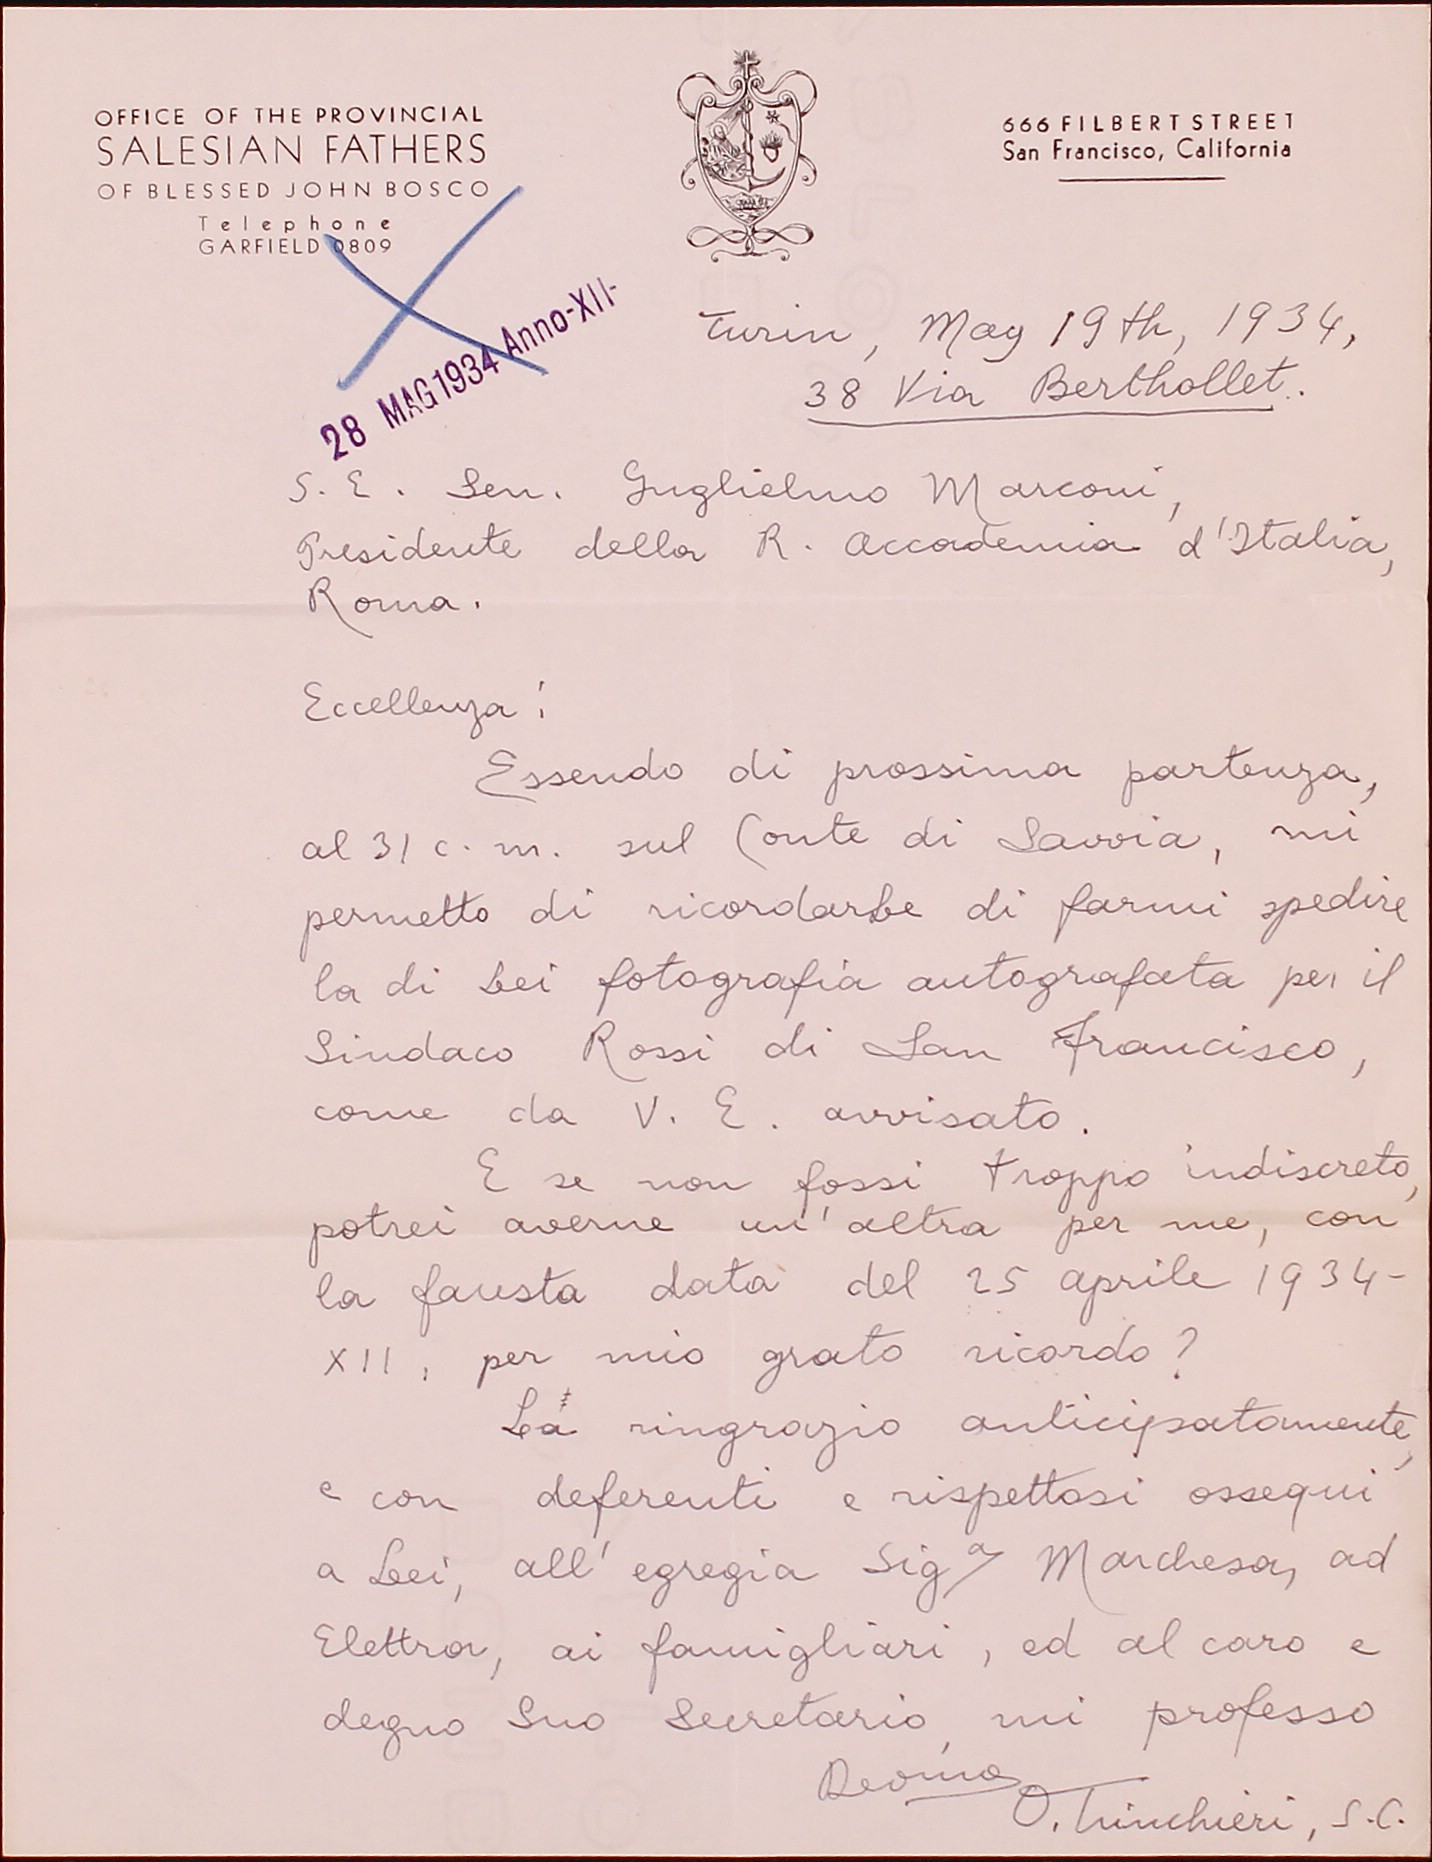 OFFICE OF THE PROVINCIAL
SALESIAN FATHERS
OF BLESSED JOHN BOSCO
Telephone
GARFIELD 0809
666 FILBERT STREET
San Francisco, California
28 MAG 1934 Anno-XII-
Turin, May 19th, 1934,
38 Via Berthollet.
S. E. Sen. Guglielmo Marconi,
Presidente della R. Accademia d'Italia,
Roma.
Eccellenza:
Essendo di prossima partenza,
al 31 c. m. sul Conte di Savoia, mi
permetto di ricordarLe di farmi spedire
la di Lei fotografia autografata per il
Sindaco Rossi di San Francisco,
come da V. E. avvisato.
E se non fossi troppo indiscreto,
potrei averne un'altra per me, con
la fausta data del 25 aprile 1934-
XII, per mio grato ricordo?
La ringrazio anticipatamente,
e con deferenti e rispettosi ossequi
a Lei, all'egregia Sigª Marchesa, ad
Elettra, ai famigliari, ed al caro e
degno Suo Secretario, mi professo
Devmo
O. Trinchieri, S.C.